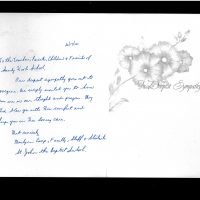 To the Teachers, Parents, Children & Friends of
Sandy Hook School,
Our deepest sympathy goes out to
everyone. We simply wanted you to know
you are in our thoughts and prayers. May
God bless you with His comfort and
keep you in His loving care.
Most sincerely,
Faculty, Staff & Students
St. John the Baptist School
In Deepest Sympathy